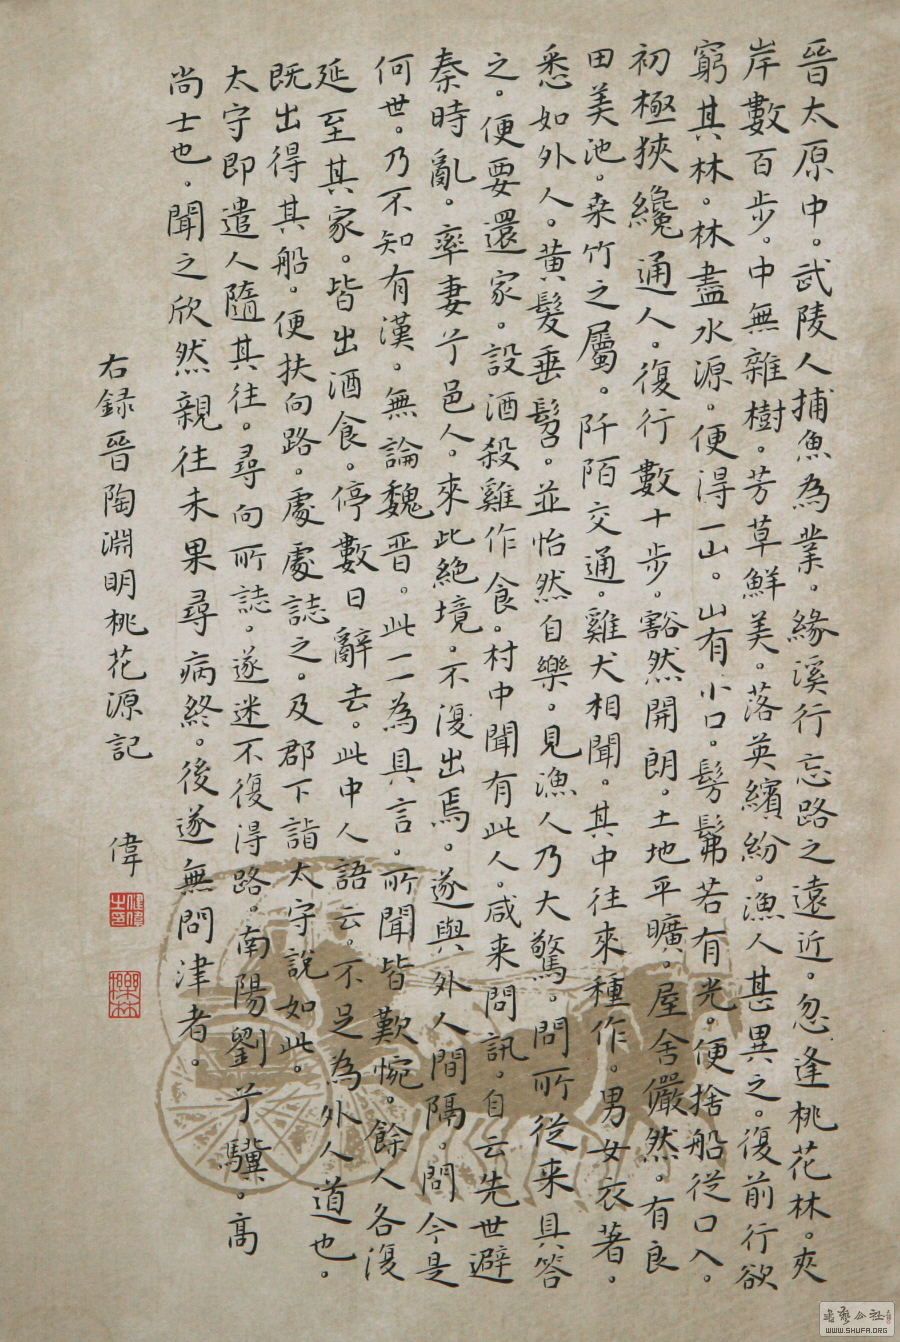 晉太原中。武陵人捕魚為業。緣溪行忘路之遠近。忽逢桃花林。夾
岸數百步。中無雜樹。芳草鮮美。落英繽紛。漁人甚異之。復前行欲
窮其林。林盡水源。便得一山。山有小口。髣髴若有光。便捨船從口入。
初極狹纔通人。復行數十步。豁然開朗。土地平曠。屋舍儼然。有良
田美池。桑竹之屬。阡陌交通。雞犬相聞。其中往來種作。男女衣著。
悉如外人。黃髮垂髫。並怡然自樂。見漁人乃大驚。問所從来具答
之。便要還家。設酒殺雞作食。村中聞有此人。咸来問訊。自云先世避
秦時亂。率妻子邑人。來此絕境。不復出焉。遂與外人間隔。問今是
何世。乃不知有漢。無論魏晉。此一一為具言。所聞皆歎惋。餘人各復
延至其家。皆出酒食。停數日辭去。此中人語云。不足為外人道也。
既出得其船。便扶向路。處處誌之。及郡下詣太守說如此。
太守即遣人隨其往。尋向所誌。遂迷不復得路。南陽劉子驥。高
尚士也。聞之欣然親往未果尋病終。後遂無問津者。
右錄晉陶淵明桃花源記 偉
WWW.SHUFA.ORG